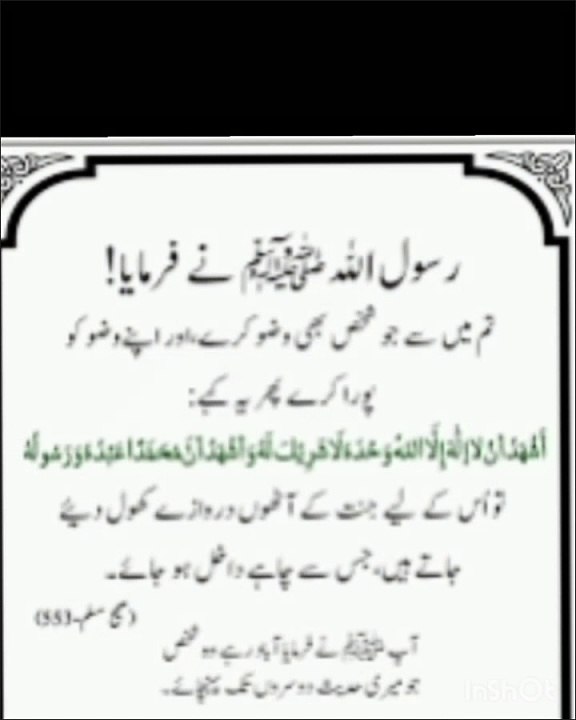 رسول اللہ ﷺ نے فرمایا!
تم میں سے جو شخص بھی وضو کرے،اور اپنے وضو کو
پورا کرے پھر یہ کہے:
أَشْهَدُ أَنْ لَا إِلٰهَ إِلَّا اللهُ وَحْدَهُ لَا شَرِيْكَ لَهُ وَأَشْهَدُ أَنَّ مُحَمَّدًا عَبْدُهُ وَرَسُولُهُ
تو اُس کے لیے جنت کے آٹھوں دروازے کھول دیئے
جاتے ہیں،جس سے چاہے داخل ہو جائے۔
(صحیح مسلم-553)
آپ ﷺ نے فرمایا آباد رہے وہ شخص
جو میری حدیث دوسروں تک پہنچائے۔
InShOt